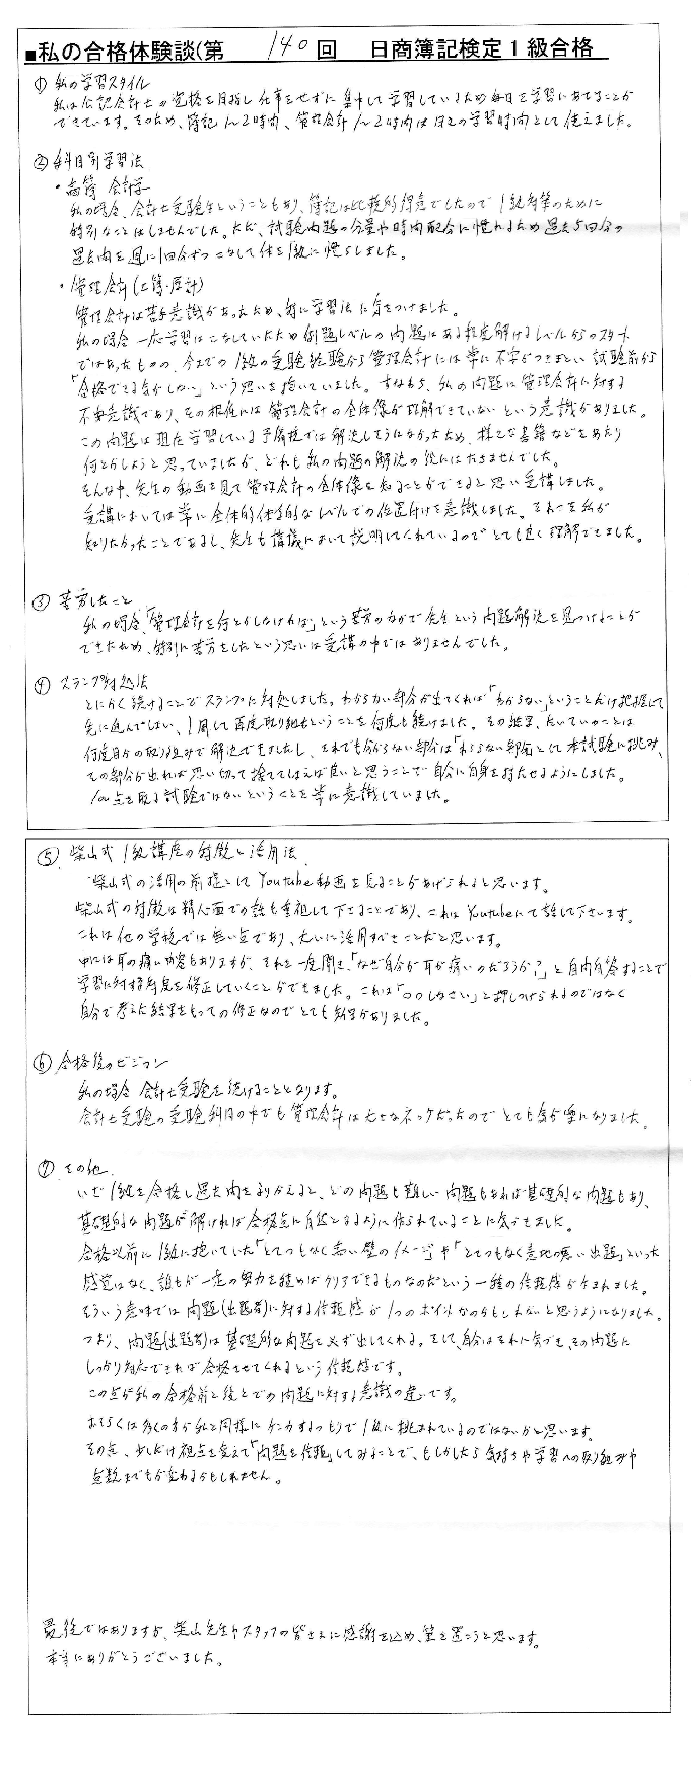 ■私の合格体験談(第 140 回 日商簿記検定1級合格
① 私の学習スタイル
私は公認会計士の資格を目指し仕事をせずに集中して学習しているため毎日を学習にあてることが
できています。そのため、簿記1〜2時間、管理会計1〜2時間は日々の学習時間として使えました。
② 科目別学習法
・商簿 会計学
私の場合、会計士受験生ということもあり、簿記は比較的得意でしたので1級対策のために
特別なことはしませんでした。ただ、試験問題の分量や時間配分に慣れるため過去5回分の
過去問を週に1回分ずつこなして体を1級に慣らしました。
・管理会計(工簿・原計)
管理会計は苦手意識があったため、特に学習法に気をつけました。
私の場合一応学習はこなしていたため例題レベルの問題はある程度解けるレベルからのスタート
ではあったものの、今までの1級の受験経験から管理会計には常に不安がつきまとい試験前から
「合格できる気がしない」という思いを抱いていました。すなわち、私の問題は管理会計に対する
不安意識であり、その根底には管理会計の全体像が理解できていないという意識がありました。
この問題は現在学習している予備校では解決しそうになかったため、様々な書籍などをあたり
何とかしようと思っていましたが、どれも私の問題の解決の役には立ちませんでした。
そんな中、先生の動画を見て管理会計の全体像を知ることができると思い受講しました。
受講においては常に全体的体系的なレベルでの位置付けを意識しました。それこそ私が
知りたかったことであるし、先生も講義において説明してくれているのでとても良く理解できました。
③ 苦労したこと
私の場合、「管理会計を何とかしなければ」という苦労の中で先生という問題解決を見つけることが
できたため、特別に苦労をしたという思いは受講の中ではありませんでした。
④ スランプ対処法
とにかく続けることでスランプに対処しました。わからない部分が出てくれば「わからない」ということだけ把握して
先に進んでしまい、1周して再度取り組むということを何度も続けました。その結果、たいていのことは
何度目かの取り組みで解決できましたし、それでも分からない部分は「わからない部分」として本試験に挑み、
その部分が出れば思い切って捨ててしまえば良いと思うことで自分に自身を持たせるようにしました。
100点を取る試験ではないということを常に意識していました。
⑤ 柴山式1級講座の特徴と活用法
柴山式の活用の前提としてYoutube動画を見ることがあげられると思います。
柴山式の特徴は精神面での話も重視して下さることであり、これはYoutubeにて話して下さいます。
これは他の学校では無い点であり、大いに活用すべきことだと思います。
中には耳の痛い内容もありますが、それを一度聞き、「なぜ自分が耳が痛いのだろうか?」と自問自答することで
学習に対する態度を修正していくことができました。これは「〇〇しなさい」と押しつけられるのではなく
自分で考えた結果をもっての修正なのでとても効果がありました。
⑥ 合格後のビジョン
私の場合会計士受験を続けることとなります。
会計士受験の受験科目の中でも管理会計は大きなネックだったのでとても気が楽になりました。
⑦ その他
いざ1級を合格し過去問をふりかえると、どの問題も難しい問題もあれば基礎的な問題もあり、
基礎的な問題が解ければ合格点に自然となるように作られていることに気づきました。
合格以前に1級に抱いていた「とてつもなく高い壁のイメージ」や「とてつもなく意地の悪い出題」といった
感覚はなく、誰もが一定の努力を積めばクリアできるものなのだという一種の信頼感が生まれました。
そういう意味では問題(出題者)に対する信頼感が1つのポイントなのかもしれないと思うようになりました。
つまり、問題(出題者)は基礎的な問題を必ず出してくれる。そして、自分はそれに気づき、その問題に
しっかり対応できれば合格させてくれるという信頼感です。
この点が私の合格前と後とでの問題に対する意識の違いです。
おそらくは多くの方が私と同様にケンカするつもりで1級に挑まれているのではないかと思います。
その点、少しだけ視点を変えて「問題を信頼」してみることで、もしかしたら気持ちや学習への取り組みや
点数までもが変わるかもしれません。
最後ではありますが、柴山先生やスタッフの皆さまに感謝を込め、筆を置こうと思います。
本当にありがとうございました。